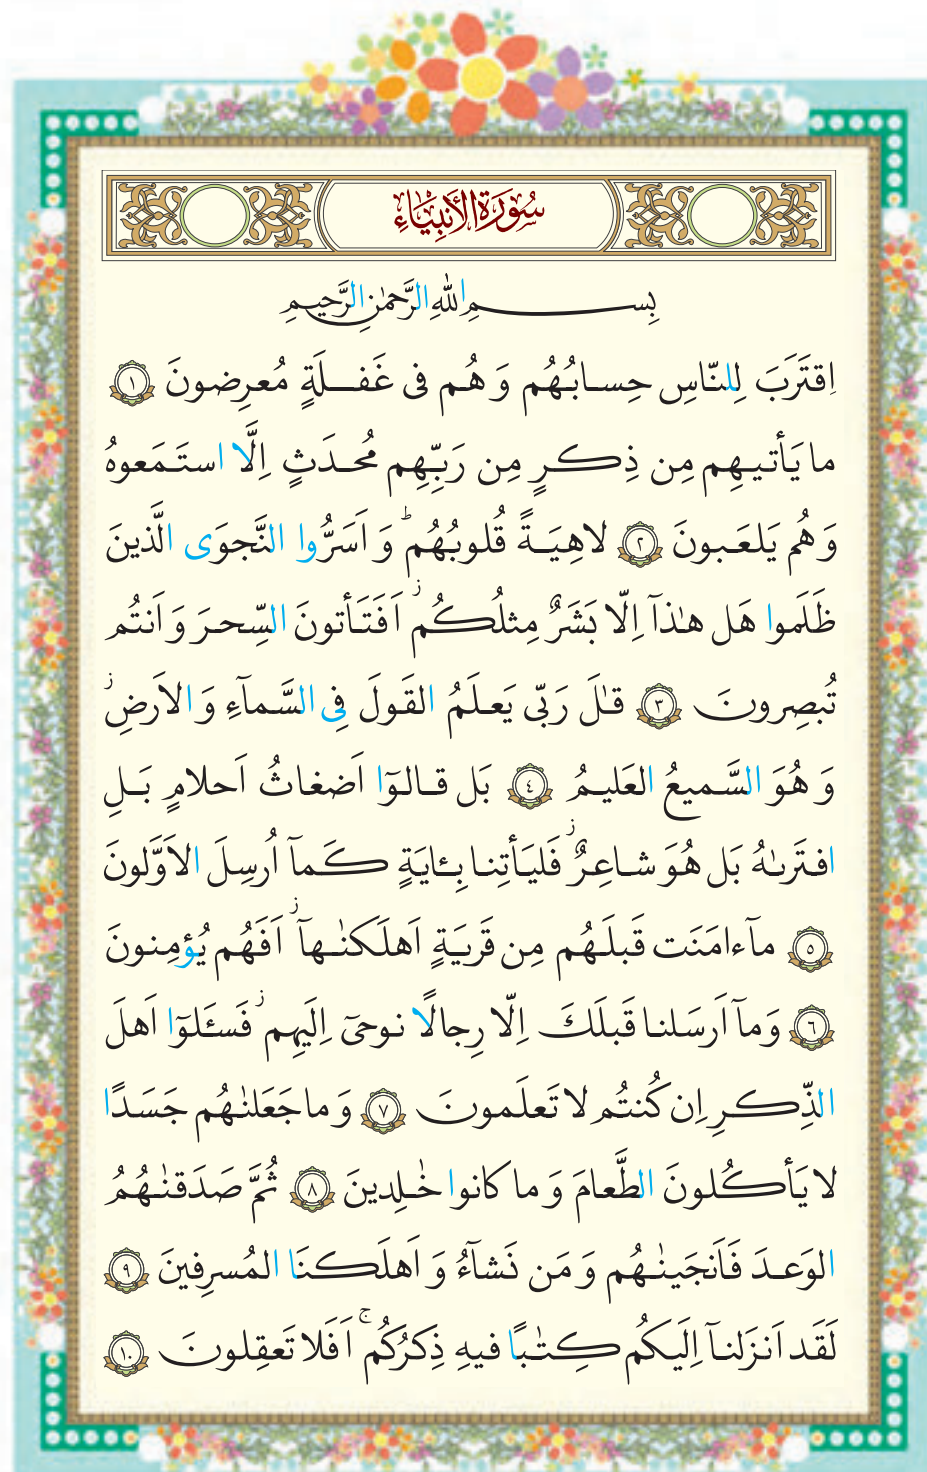 سُورَةُ الْأَنْبِيَاءِ
بِسمِ اللهِ الرَّحمٰنِ الرَّحيمِ
اِقتَرَبَ لِلنّاسِ حِسابُهُم وَ هُم فی غَفلَةٍ مُعرِضونَ ﴿١﴾
ما يَأتيهِم مِن ذِكرٍ مِن رَبِّهِم مُحدَثٍ اِلَّا استَمَعوهُ
وَ هُم يَلعَبونَ ﴿٢﴾ لاهِيَةً قُلوبُهُم ؕ وَ اَسَرُّوا النَّجوَی الَّذينَ
ظَلَموا هَل هٰذآ اِلّا بَشَرٌ مِثلُكُم ۯ اَفَتَأتونَ السِّحرَ وَ اَنتُم
تُبصِرونَ ﴿٣﴾ قٰلَ رَبّی يَعلَمُ القَولَ فِی السَّمآءِ وَ الاَرضِ ز
وَ هُوَ السَّميعُ العَليمُ ﴿٤﴾ بَل قالوٓا اَضغاثُ اَحلامٍ بَلِ
افتَرىٰهُ بَل هُوَ شاعِرٌ ز فَليَأتِنا بِـٔايَةٍ كَمآ اُرسِلَ الاَوَّلونَ
﴿٥﴾ مآ ءامَنَت قَبلَهُم مِن قَريَةٍ اَهلَكنٰهآ ز اَفَهُم يُؤمِنونَ
﴿٦﴾ وَ مآ اَرسَلنا قَبلَكَ اِلّا رِجالًا نوحیٓ اِلَيهِم ز فَسـَٔلوٓا اَهلَ
الذِّكرِ اِن كُنتُم لا تَعلَمونَ ﴿٧﴾ وَ ما جَعَلنٰهُم جَسَدًا
لا يَأكُلونَ الطَّعامَ وَ ما كانوا خٰلِدينَ ﴿٨﴾ ثُمَّ صَدَقنٰهُمُ
الوَعدَ فَاَنجَينٰهُم وَ مَن نَشآءُ وَ اَهلَكنَا المُسرِفينَ ﴿٩﴾
لَقَد اَنزَلنآ اِلَيكُم كِتٰبًا فيهِ ذِكرُكُم ۚ اَفَلا تَعقِلونَ ﴿١٠﴾